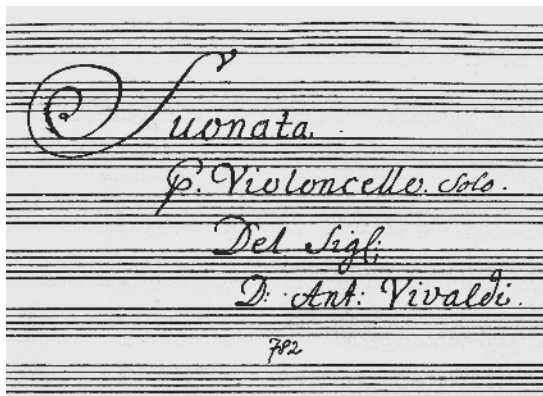 Suonata.
P. Violoncello. Solo.
Del Sigl:
D: Ant: Vivaldi.
782